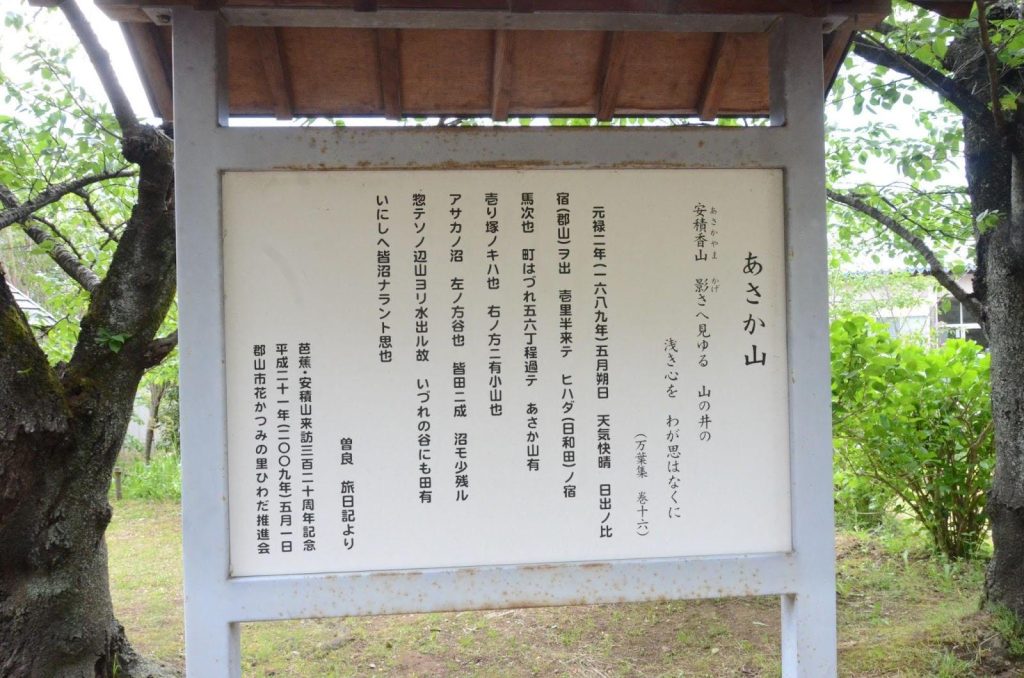 あさか山
安積香山　影さへ見ゆる　山の井の
あさかやま　かげ
浅き心を　わが思はなくに
（万葉集　巻十六）
元禄二年（一六八九年）五月朔日　天気快晴　日出ノ比
宿（郡山）ヲ出　壱里半来テ　ヒハダ（日和田）ノ宿
馬次也　町はづれ五六丁程過テ　あさか山有
壱り塚ノキハ也　右ノ方ニ有小山也
アサカノ沼　左ノ方谷也　皆田ニ成　沼モ少残ル
惣テソノ辺山ヨリ水出ル故　いづれの谷にも田有
いにしへ皆沼ナラント思也
曽良　旅日記より
芭蕉・安積山来訪三百二十周年記念
平成二十一年（二〇〇九年）五月一日
郡山市花かつみの里ひわだ推進会